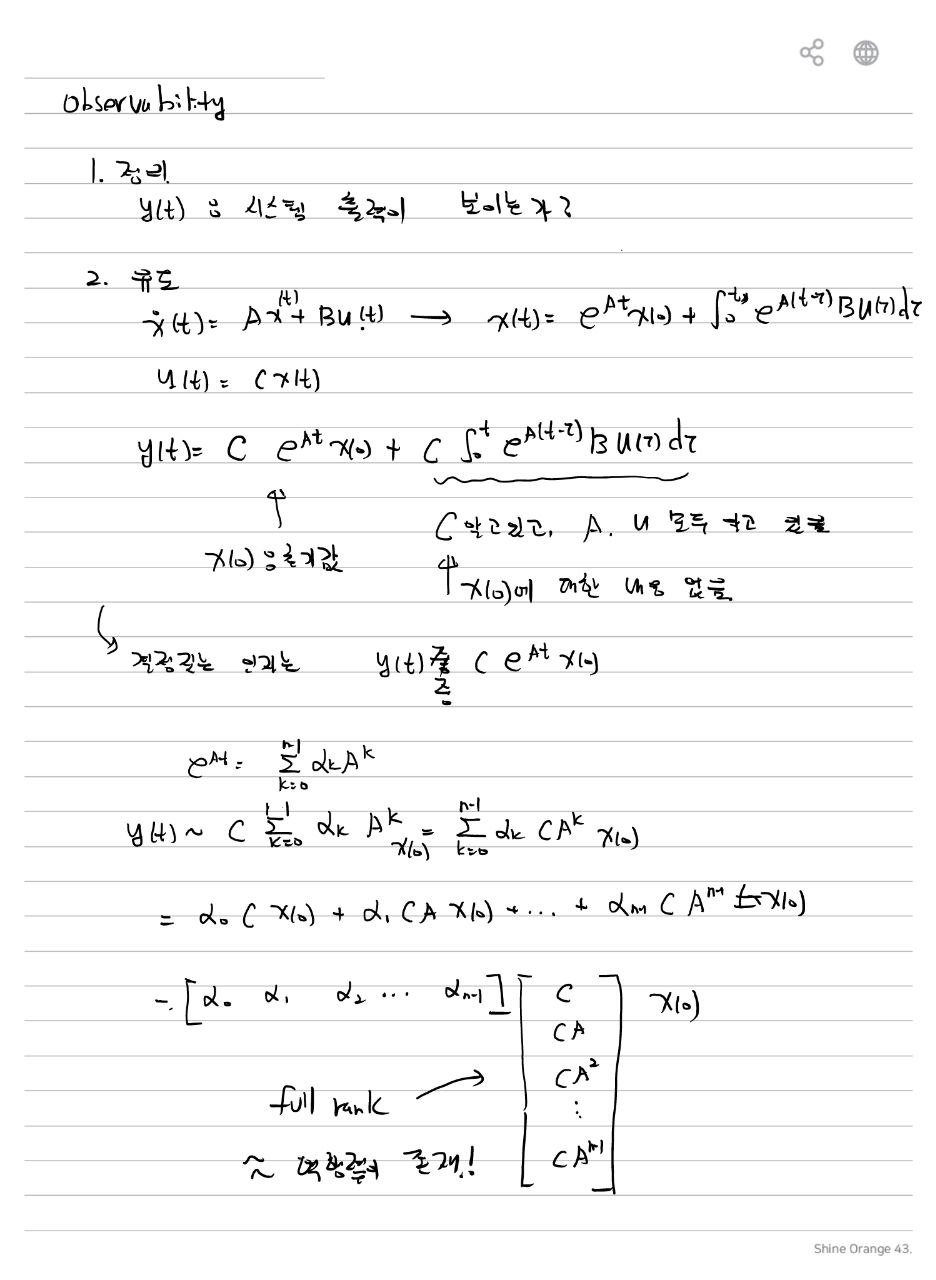 Observability
1. 정리
y(t) 응 시스템 출력이 보이는가?
2. 유도
ẋ(t) = Ax(t) + Bu(t) → x(t) = e^{At}x(0) + ∫₀ᵗ e^{A(t-τ)}Bu(τ)dτ
y(t) = Cx(t)
y(t) = C e^{At} x(0) + C ∫₀ᵗ e^{A(t-τ)} B u(τ) dτ
C 알고있고, A, u 모두 알고 있음
x(0) 초기값
x(0)에 대한 내용 없음
결정짓는 인자는 y(t) 중 C e^{At} x(0)
e^{At} = Σ_{k=0}^{n-1} α_k A^k
y(t) ~ C Σ_{k=0}^{n-1} α_k A^k x(0) = Σ_{k=0}^{n-1} α_k CA^k x(0)
= α₀ C x(0) + α₁ CA x(0) + ... + α_{n-1} C A^{n-1} x(0)
= [α₀ α₁ α₂ ... α_{n-1}] [C
CA
CA²
⋮
CA^{n-1}] x(0)
full rank →
~ 역행렬이 존재!
Shine Orange 43.